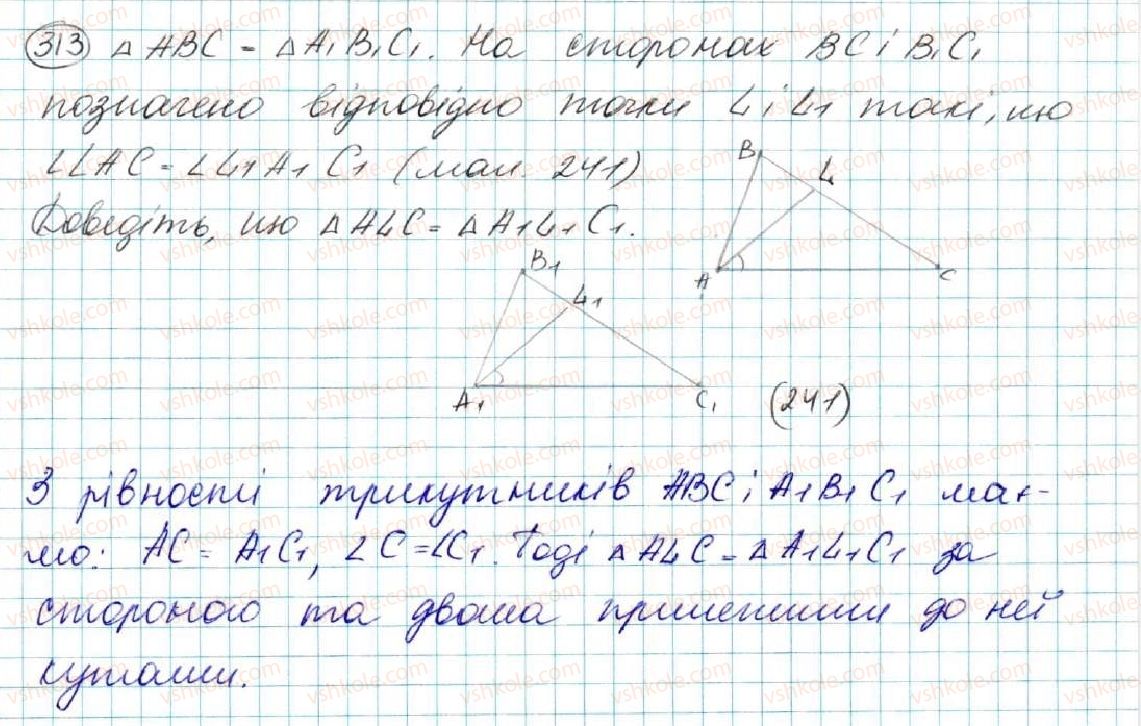 313 △ABC = △A₁B₁C₁. На сторонах BC і B₁C₁
позначено відповідно точки L і L₁ такі, що
∠LAC = ∠L₁A₁C₁ (мал. 241)
Доведіть, що △ALC = △A₁L₁C₁.
B
L
A
C
B₁
L₁
A₁
C₁
(241)
З рівності трикутників ABC і A₁B₁C₁ має-
мо: AC = A₁C₁, ∠C = ∠C₁. Тоді △ALC = △A₁L₁C₁ за
стороною та двома прилеглими до неї
кутами.